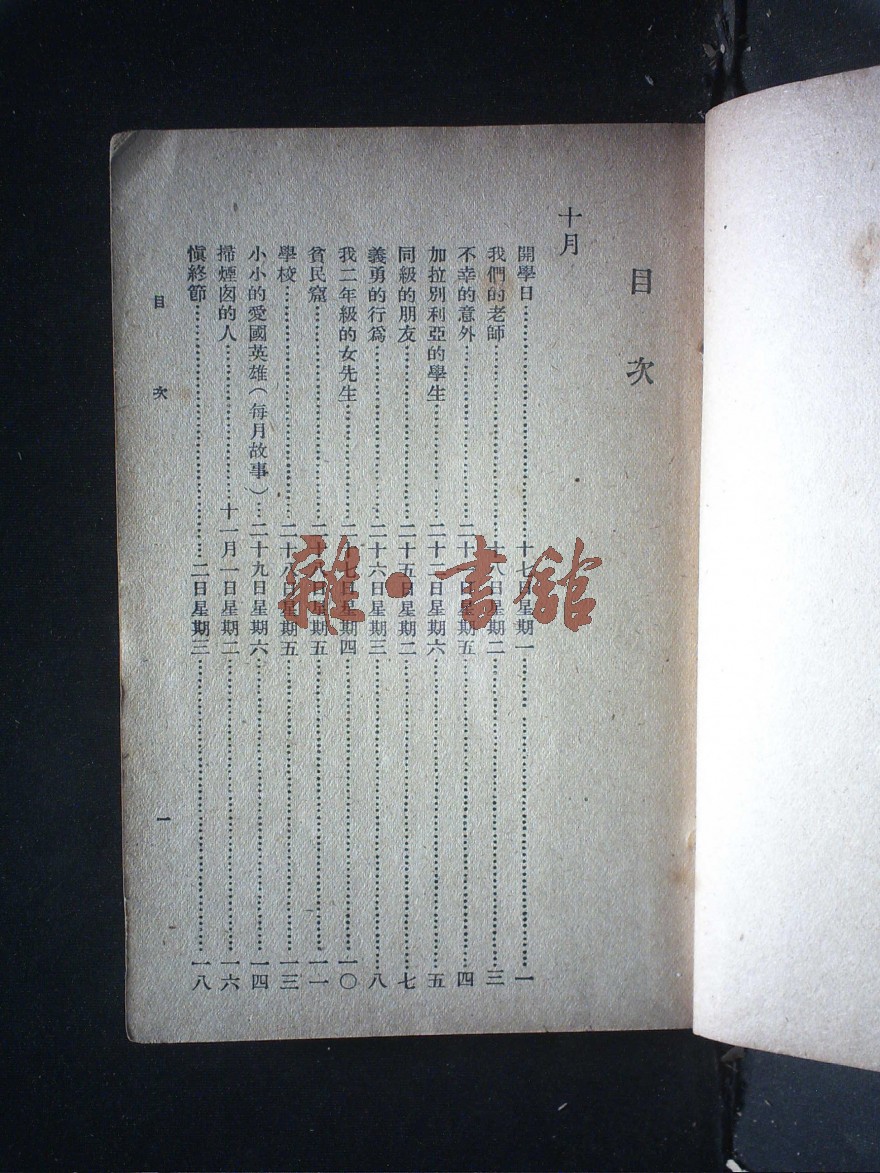 目次
十月
開學日……十七日星期一……一
我們的老師……十八日星期二……三
不幸的意外……二十一日星期五……四
加拉別利亞的學生……二十二日星期六……五
同級的朋友……二十五日星期二……七
義勇的行爲……二十六日星期三……八
我二年級的女先生……二十七日星期四……一〇
貧民窟……二十八日星期五……一一
學校……二十八日星期五……一三
小小的愛國英雄（每月故事）……二十九日星期六……一四
掃煙囱的人……十一月一日星期二……一六
愼終節……二日星期三……一八
目次
一
雜·書館